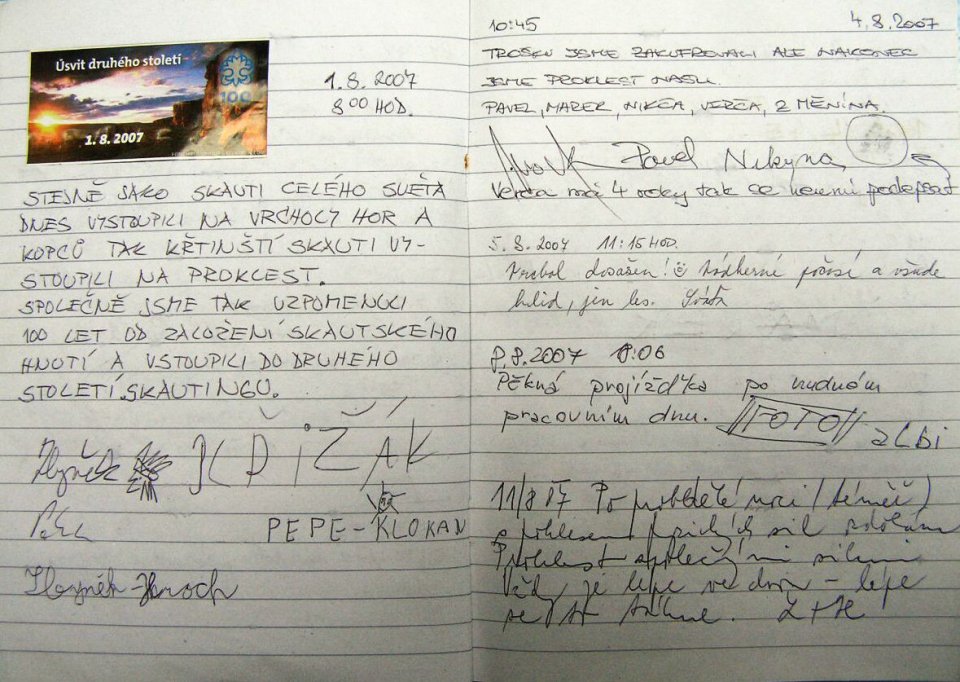 Úsvit druhého století
100
1. 8. 2007
1. 8. 2007
8 00 HOD.
STEJNĚ JAKO SKAUTI CELÉHO SVĚTA
DNES VYSTOUPILI NA VRCHOLY HOR A
KOPCŮ TAK KŘTINŠTÍ SKAUTI VY-
STOUPILI NA PROKLEST.
SPOLEČNĚ JSME TAK VZPOMENULI
100 LET OD ZALOŽENÍ SKAUTSKÉHO
HNUTÍ A VSTOUPILI DO DRUHÉHO
STOLETÍ SKAUTINGU.
Zbyněk
PEPE-KLOKAN
Zbyněk
10:45 4.8.2007
TROŠKU JSME ZAKUFROVALI ALE NAKONEC
JSME PROKLEST NAŠLI.
PAVEL, MAREK, NIKČA, VERČA, Z MĚNÍNA.
Pavel Nikyna
Verča má 4 roky tak se neumí podepsat
5. 8. 2007 11:15 HOD.
Vrchol dosažen! Nádherné počasí a všude
klid, jen les.
8.8.2007
Pěkná projížďka po nudném
pracovním dnu. FOTO
11/8 07 Po probdělé noci (téměř)
s
Proklest společnými silami
Vždy je lépe ve dvou – lépe
se to táhne. Z + H